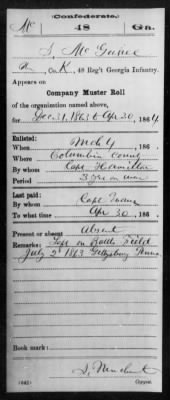 (Confederate.)
Mc 48 Ga.
S. McGuire
Co. K, 48 Reg't Georgia Infantry.
Appears on
Company Muster Roll
of the organization named above,
for Dec 31, 1863 to Apr 30, 1864
Enlisted:
When Mch 4, 186
Where Columbia County
By whom Capt Hamilton
Period 3 yrs or war
Last paid:
By whom Capt
To what time Apr 30, 186
Present or absent Absent
Remarks: Left on Battle Field
July 2d 1863 Gettysburg Penna
Book mark:
(642) Copyist.